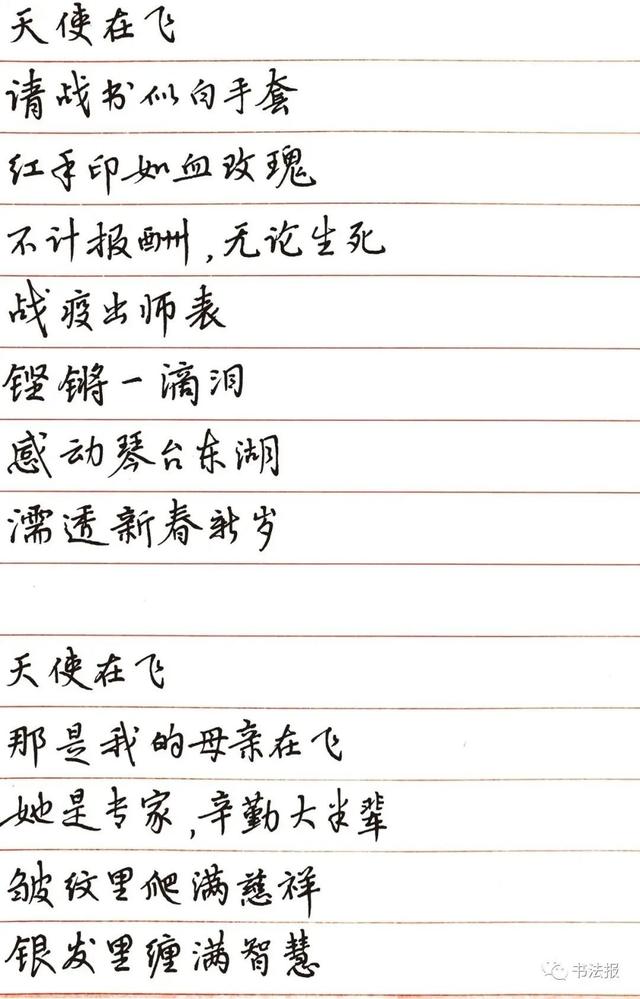 天使在飞
请战书似白手套
红手印如血玫瑰
不计报酬,无论生死
战疫出师表
铿锵一滴泪
感动琴台东湖
濡透新春新岁
天使在飞
那是我的母亲在飞
她是专家,辛勤大半辈
皱纹里爬满慈祥
银发里缠满智慧
书法报